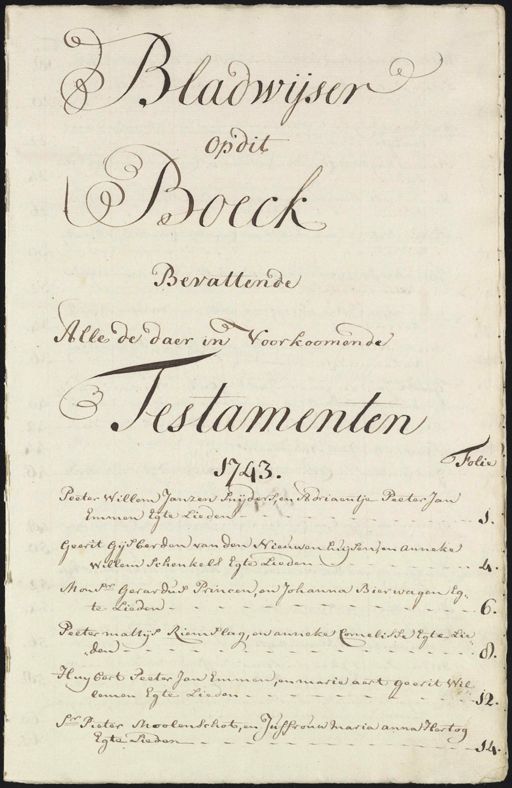 Bladwijser
op dit
Boeck
Bevattende
Alle de daer in Voorkoomende
Testamenten
1743.
Folio
Peeter Willem Janzen Snijders en Adriaentje Peeter Jan
Emmen Egte Lieden 1.
Geerit Gijsberden van den Nieuwenhuijsen, en Anneke
Willem Schenkels Egte Lieden 4.
Monsr. Gerardus Princen, en Johanna Bierwagen Eg-
te Lieden 6.
Peeter mattijs Riemslag, en anneke Cornelisse Egte Lie
den 8.
Huybert Peeter Jan Emmen, en marie aert Geerit Wil
lemen Egte Lieden 12.
Sr. Pieter Moolenschot, en Juffrouw maria anna Hertog
Egte Lieden 14.